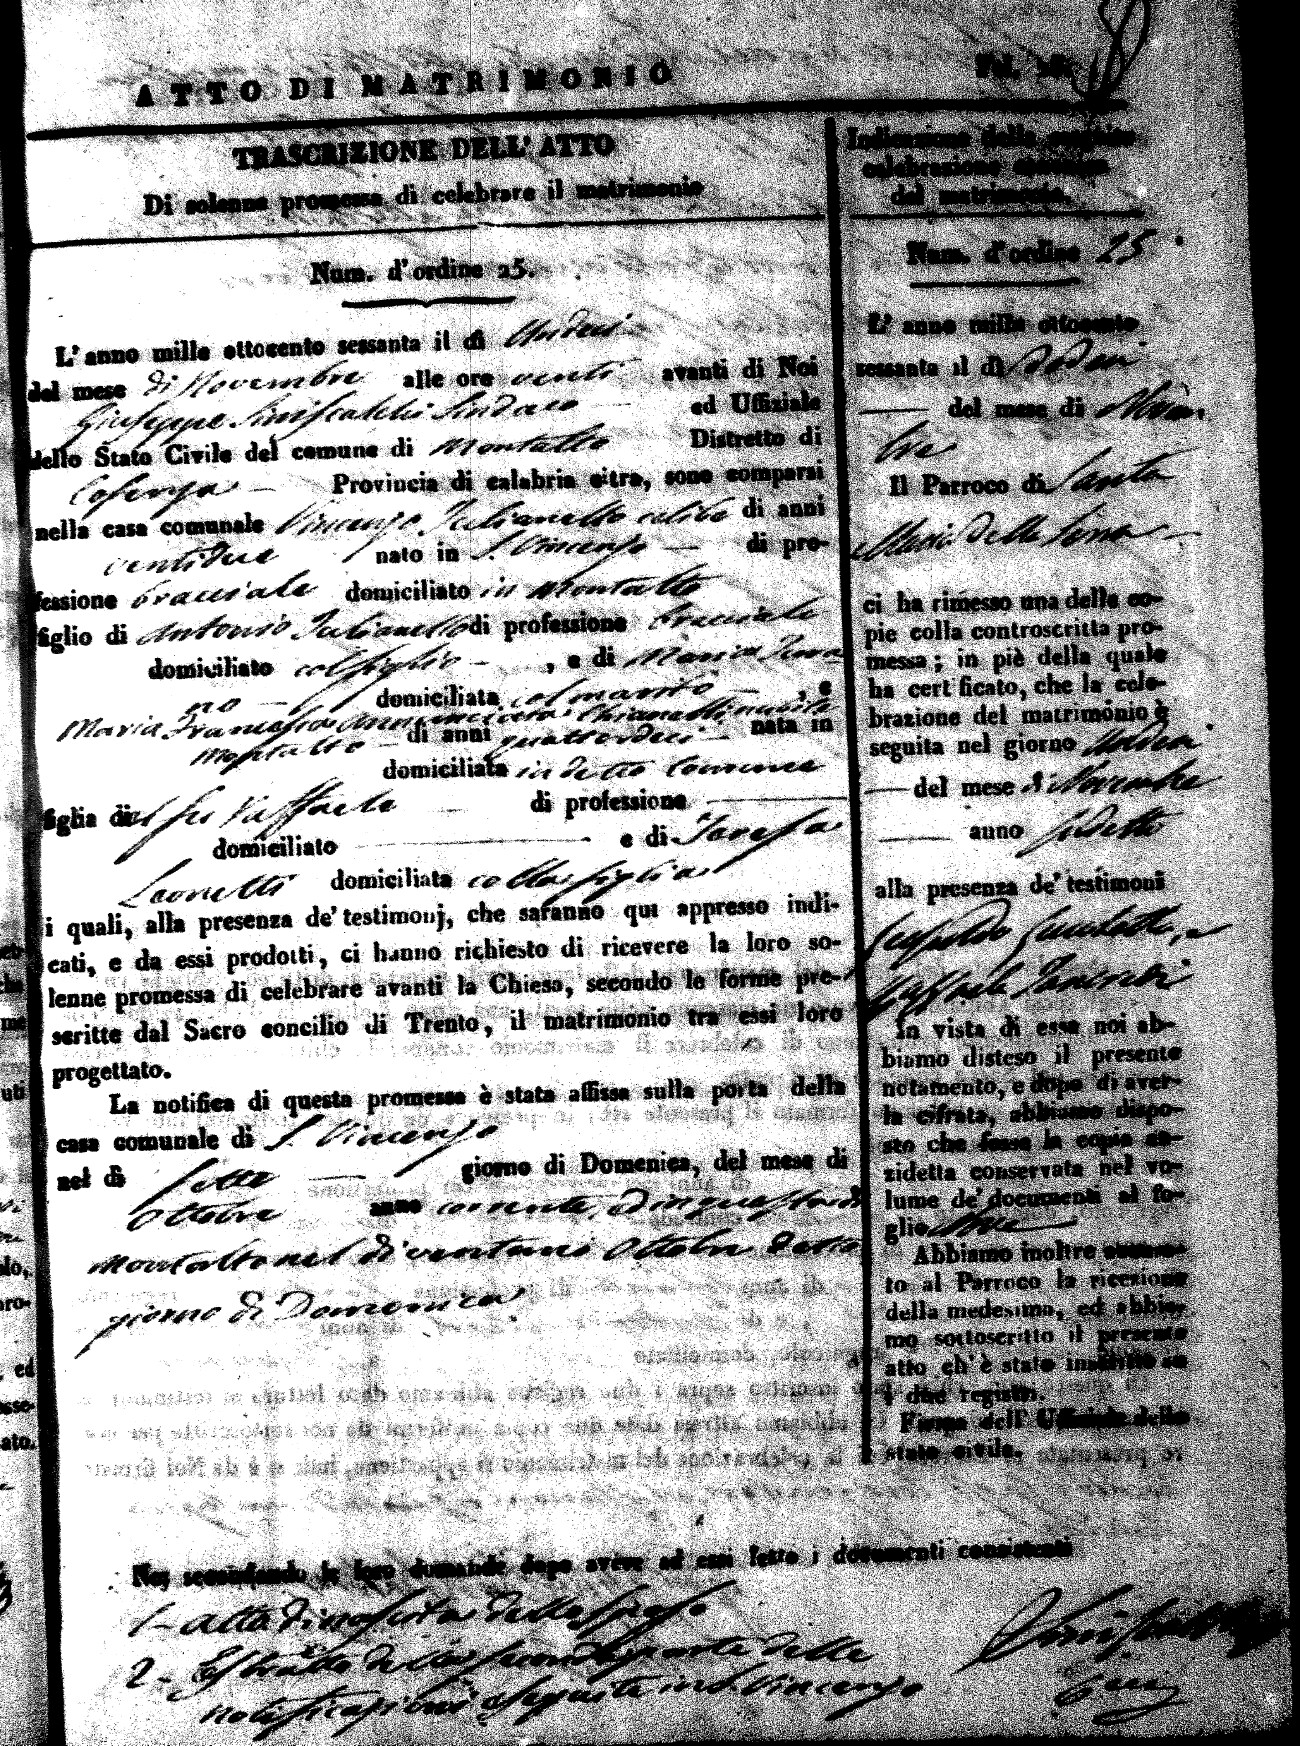 ATTO DI MATRIMONIO
Fol. 18
TRASCRIZIONE DELL' ATTO
Di solenne promessa di celebrare il matrimonio
Num. d'ordine 25.
L'anno mille ottocento sessanta il dì Undeci
del mese di Novembre alle ore venti avanti di Noi
Giuseppe Siniscalchi Sindaco ed Uffiziale
dello Stato Civile del comune di Montalto Distretto di
Cosenza Provincia di calabria citra, sono comparsi
nella casa comunale Vincenzo Iulianello celibe di anni
ventidue nato in S. Vincenzo di pro-
fessione bracciale domiciliato in Montalto
figlio di Antonio Iulianello di professione bracciale
domiciliato col figlio , e di Maria
no domiciliata col marito , e
Maria Francesca Annunciata Chianelli nubile
di anni quattordeci nata in
Montalto
domiciliata in detto Comune
figlia di del fu Raffaele di professione
domiciliato e di Teresa
Leonetti domiciliata colla figlia
i quali, alla presenza de' testimonj, che saranno qui appresso indi-
cati, e da essi prodotti, ci hanno richiesto di ricevere la loro so-
lenne promessa di celebrare avanti la Chiesa, secondo le forme pre-
scritte dal Sacro concilio di Trento, il matrimonio tra essi loro
progettato.
La notifica di questa promessa è stata affissa sulla porta della
casa comunale di S. Vincenzo
nel dì sette giorno di Domenica, del mese di
Ottobre anno corrente, ed in questa di
Montalto nel dì ventuno Ottobre detto
giorno di Domenica
Noi secondando le loro domande dopo avere ad essi letto i documenti consistenti
1- Atto di nascita dello sposo
2- Estratto della seconda parte delle
notificazioni eseguite in S. Vincenzo
Indicazione della seguita
celebrazione canonica
del matrimonio.
Num. d'ordine 25
L' anno mille ottocento
sessanta il dì Dodeci
del mese di Novem
bre
Il Parroco di Santa
Maria della Serra
ci ha rimesso una delle co-
pie colla controscritta pro-
messa; in piè della quale
ha certificato, che la cele-
brazione del matrimonio è
seguita nel giorno Undeci
del mese di Novembre
anno sudetto
alla presenza de' testimoni
Raffaele
In vista di essa noi ab-
biamo disteso il presente
notamento, e dopo di aver-
la cifrata, abbiamo dispo-
sto che fosse la copia an-
zidetta conservata nel vo-
lume de' documenti al fo-
glio
Abbiamo inoltre accusa-
to al Parroco la ricezione
della medesima, ed abbia-
mo sottoscritto il presente
atto ch' è stato inscritto su
i due registri.
Firma dell' Uffiziale dello
stato civile.